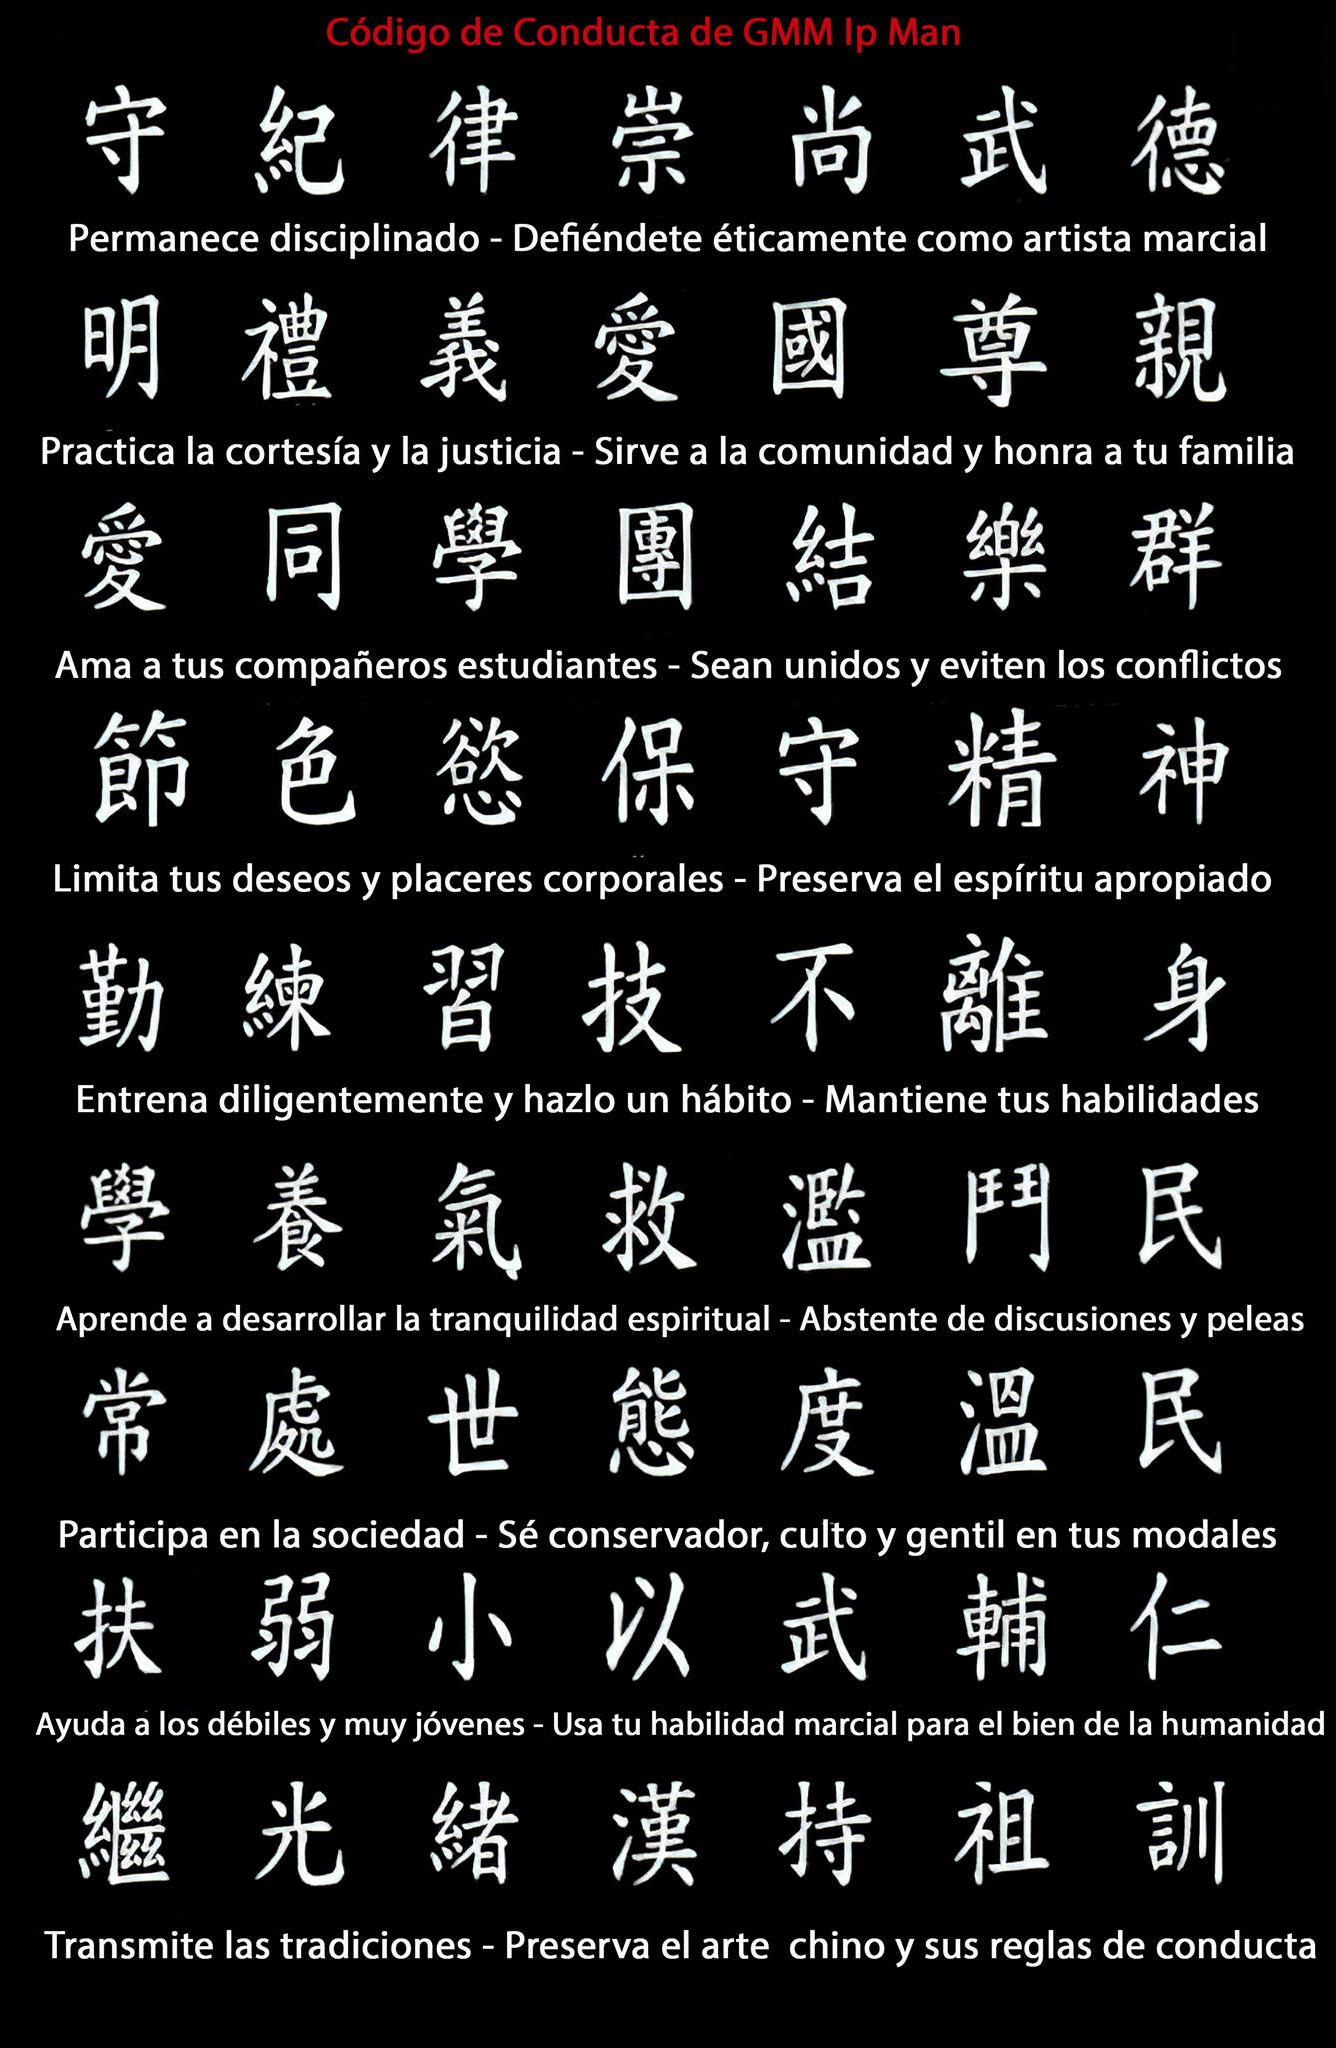 Código de Conducta de GMM Ip Man
守紀律崇尚武德
Permanece disciplinado - Defiéndete éticamente como artista marcial
明禮義愛國尊親
Practica la cortesía y la justicia - Sirve a la comunidad y honra a tu familia
愛同學團結樂群
Ama a tus compañeros estudiantes - Sean unidos y eviten los conflictos
節色慾保守精神
Limita tus deseos y placeres corporales - Preserva el espíritu apropiado
勤練習技不離身
Entrena diligentemente y hazlo un hábito - Mantiene tus habilidades
學養氣救濫鬥民
Aprende a desarrollar la tranquilidad espiritual - Abstente de discusiones y peleas
常處世態度溫民
Participa en la sociedad - Sé conservador, culto y gentil en tus modales
扶弱小以武輔仁
Ayuda a los débiles y muy jóvenes - Usa tu habilidad marcial para el bien de la humanidad
繼光緒漢持祖訓
Transmite las tradiciones - Preserva el arte chino y sus reglas de conducta